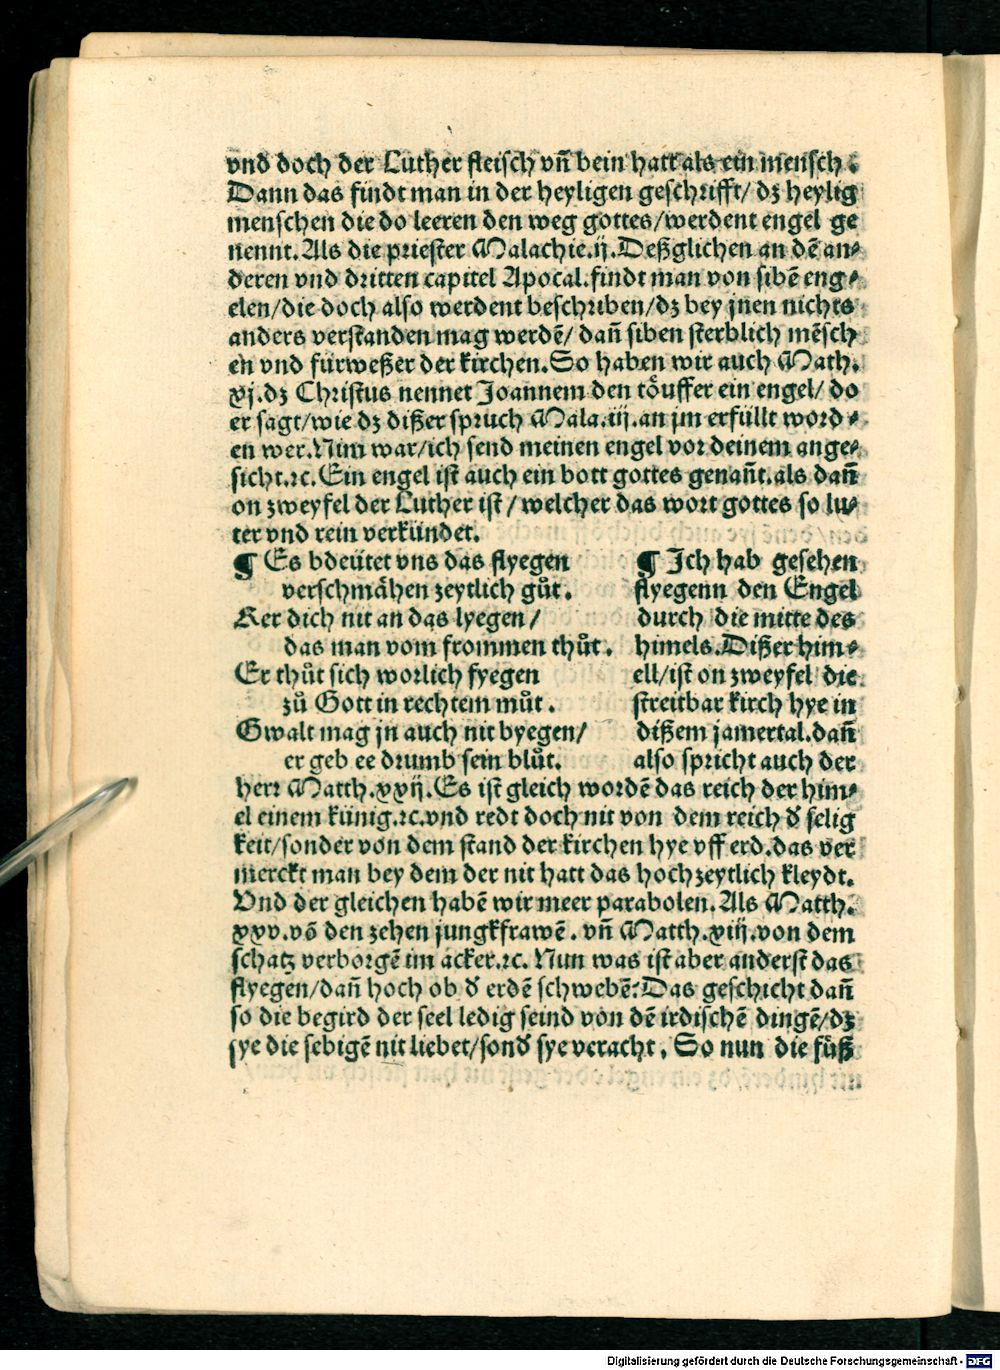 vnd doch der Luther fleisch vñ bein hatt als ein mensch.
Dann das findt man in der heyligen geschrifft/ dz heylig
menschen die do leeren den weg gottes/werdent engel ge
nennt. Als die priester Malachie.ij. Deßglichen an dē an⸗
deren vnd dritten capitel Apocal. findt man von sibē eng⸗
elen/die doch also werdent beschriben/dz bey jnen nichts
anders verstanden mag werdē/ dañ siben sterblich mēsch
en vnd fürweßer der kirchen. So haben wir auch Math.
xj. dz Christus nennet Joannem den töuffer ein engel/ do
er sagt/wie dz dißer spruch Mala.iij. an jm erfüllt word⸗
en wer. Nim war/ich send meinen engel vor deinem ange⸗
sicht.ꝛc. Ein engel ist auch ein bott gottes genañt. als dañ
on zweyfel der Luther ist/ welcher das wort gottes so lu⸗
ter vnd rein verkündet.
¶ Es bdeütet vns das flyegen
verschmähen zeytlich gůt.
Ker dich nit an das lyegen/
das man vom frommen thůt.
Er thůt sich worlich fyegen
zů Gott in rechtem můt.
Gwalt mag jn auch nit byegen/
er geb ee drumb sein blůt.
¶ Ich hab gesehen
flyegenn den Engel
durch die mitte des
himels. Dißer him⸗
ell/ist on zweyfel die
streitbar kirch hye in
dißem jamertal. dañ
also spricht auch der
herr Matth.xxij. Es ist gleich wordē das reich der him⸗
el einem künig.ꝛc. vnd redt doch nit von dem reich ð selig
keit/sonder von dem stand der kirchen hye vff erd. das ver
merckt man bey dem der nit hatt das hochzeytlich kleydt.
Vnd der gleichen habē wir meer parabolen. Als Matth.
xxv. vō den zehen jungkfrawē. vñ Matth.xiij. von dem
schatz verborgē im acker.ꝛc. Nun was ist aber anderst das
flyegen/dañ hoch ob ð erdē schwebē: Das geschicht dañ
so die begird der seel ledig seind von dē irdischē dingē/dz
sye die sebigē nit liebet/sonð sye veracht. So nun die füß
Digitalisierung gefördert durch die Deutsche Forschungsgemeinschaft - DFG